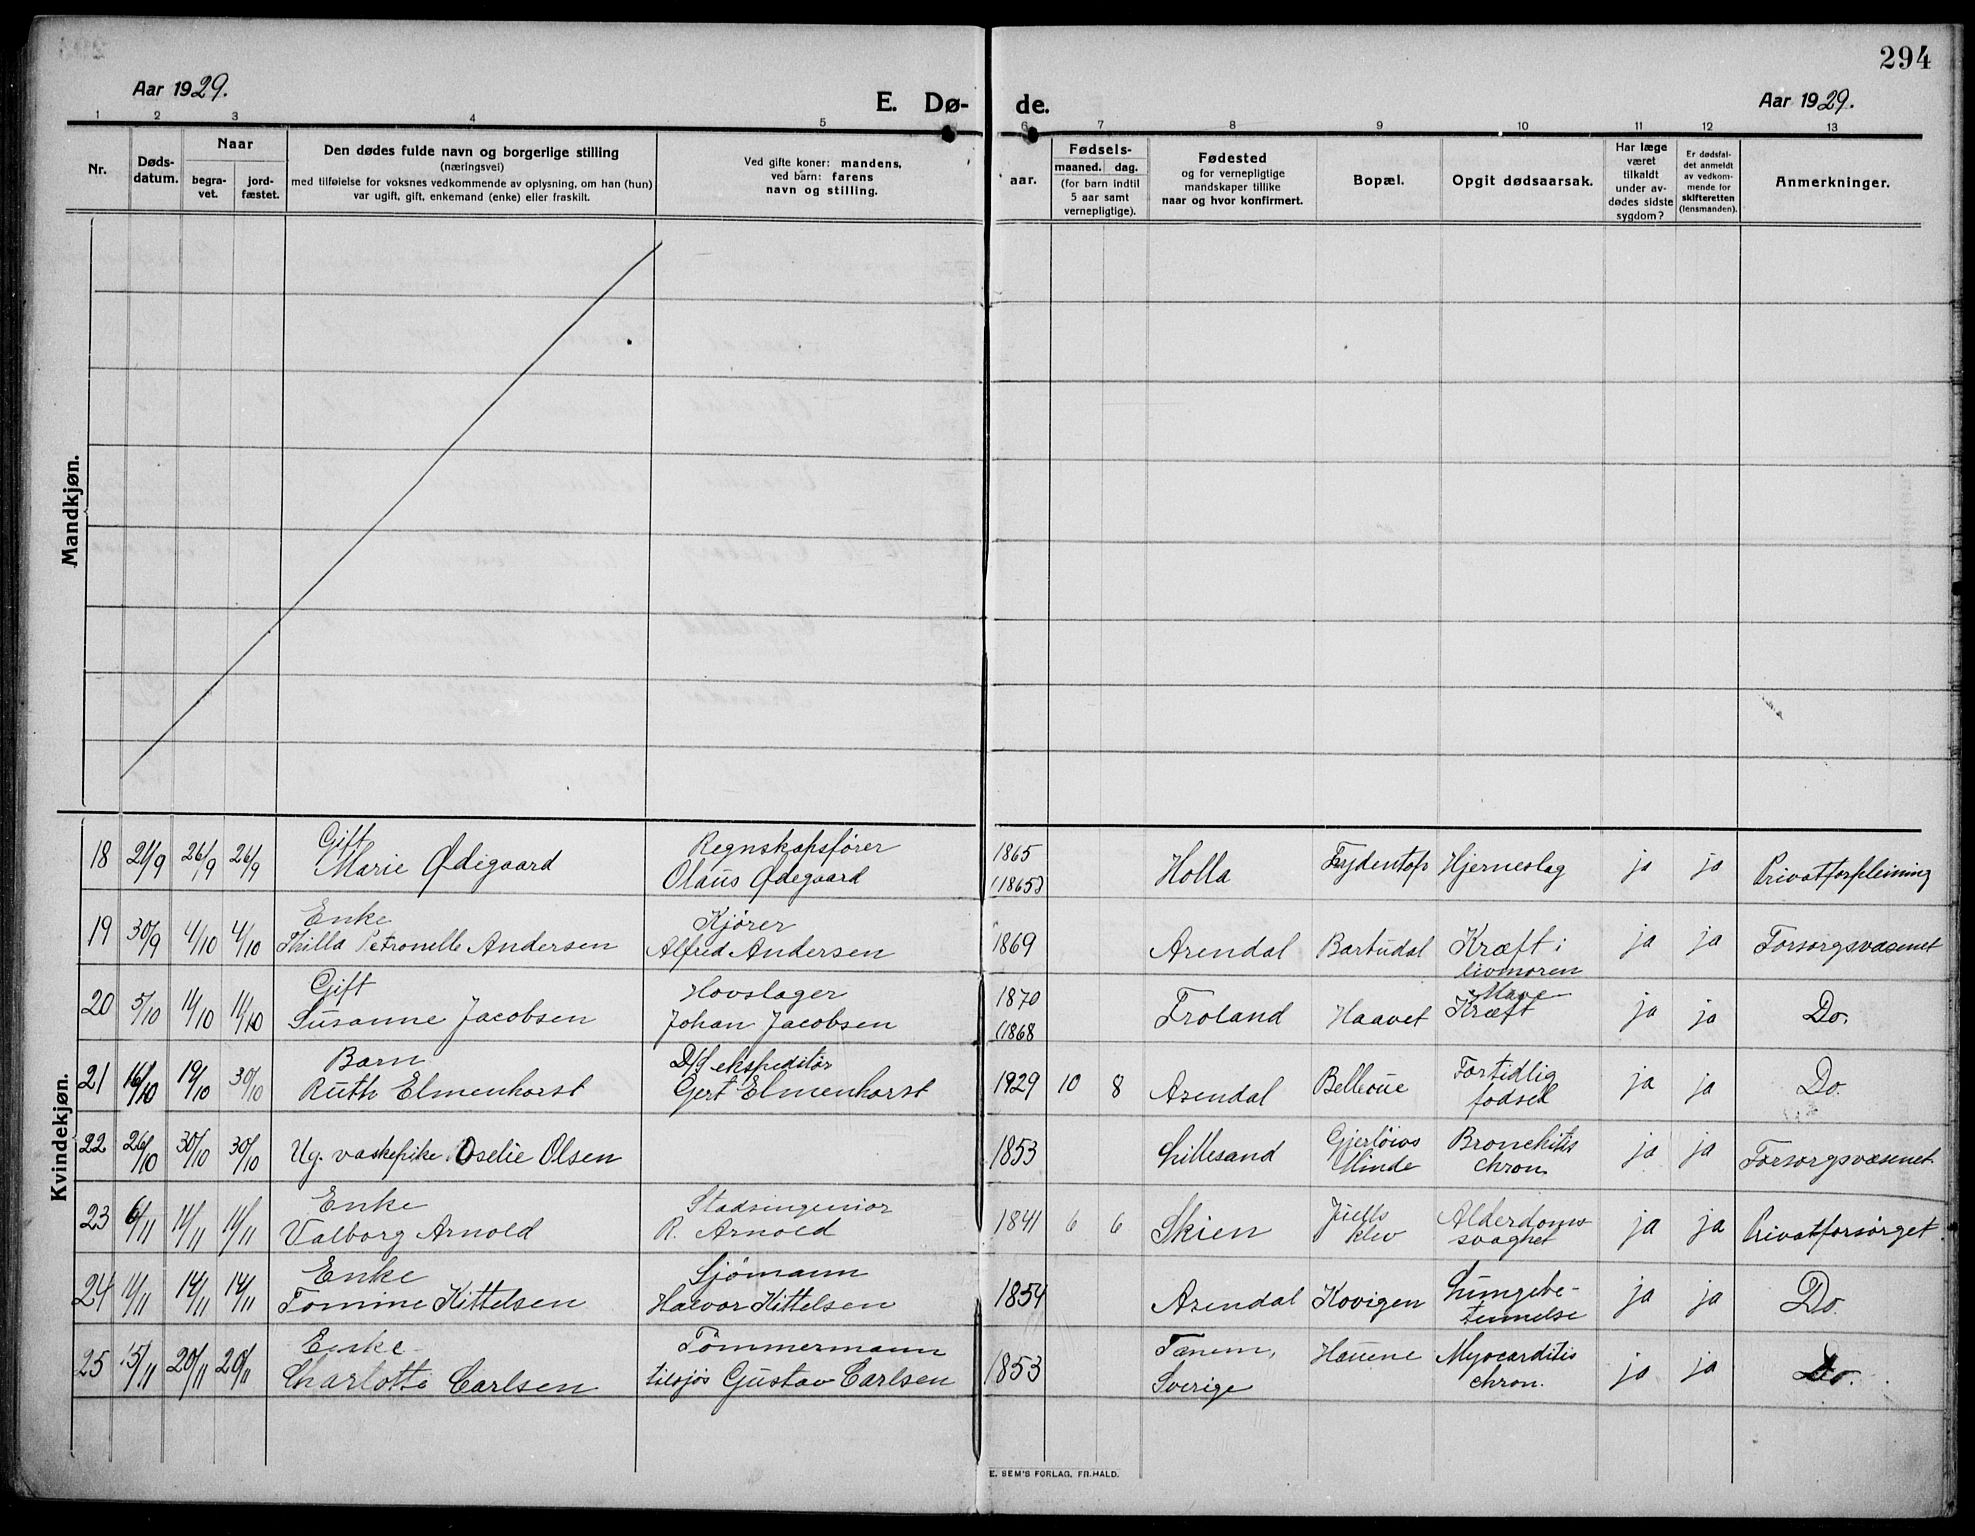 294
Aar 1929.
E. Dø-
de.
Aar 1929.
1 2 3 4 5 6 7 8 9 10 11 12 13
Nr.
Døds-
datum.
Naar
begra-
vet.
jord-
fæstet.
Den dødes fulde navn og borgerlige stilling
(næringsvei)
med tilføielse for voksnes vedkommende av oplysning, om han (hun)
var ugift, gift, enkemand (enke) eller fraskilt.
Ved gifte koner: mandens,
ved barn: farens
navn og stilling.
aar.
Fødsels-
maaned. dag.
(for barn indtil
5 aar samt
vernepligtige).
Fødested
og for vernepligtige
mandskaper tillike
naar og hvor konfirmert.
Bopæl.
Opgit dødsaarsak.
Har læge
været
tilkaldt
under av-
dødes sidste
sygdom?
Er dødsfal-
det anmeldt
av vedkom-
mende for
skifteretten
(lensmanden).
Anmerkninger.
Mandkjøn.
Kvindekjøn.
Gift Regnskapsfører 1865
18 21/9 26/9 26/9 Marie Ødegaard Olaus Ødegaard (1865) Holla Frydentop Hjerneslag ja ja Privatforpleining
Enke Kjører
19 30/9 4/10 4/10 Thilla Petronelle Andersen Alfred Andersen 1869 Arendal Barbudal Kræft i ja ja Forsorgsvæsenet
livmoren
Gift Hovslager 1870 Mave
20 5/10 11/10 11/10 Susanne Jacobsen Johan Jacobsen (1868 Froland Haavet Kræft ja ja Do.
Barn D/S ekspeditør Fortidlig
21 16/10 19/10 30/10 Ruth Elmenhorst Gert Elmenhorst 1929 10 8 Arendal Bellevue fødsel ja ja Do.
22 26/10 30/10 30/10 Ug. vaskepike Oselie Olsen 1853 Lillesand Gjerløws Bronchitis ja ja Forsorgsvæsenet
Minde chron.
Enke Stadsingeniør
23 6/11 11/11 11/11 Valborg Arnold R. Arnold 1841 6 6 Skien Juells Alderdoms ja ja Privatforsørget
klev svaghet
Enke Sjømann
24 11/11 14/11 14/11 Tomine Kittelsen Halvor Kittelsen 1854 Arendal Kovigen Lungebe- ja ja Do.
tennelse
Enke Tømmermann Tanem,
25 15/11 20/11 20/11 Charlotte Carlsen tilsjøs Gustav Carlsen 1853 Sverige Hauene Myocarditis ja ja Do.
chron.
E. SEM'S FORLAG, FR.HALD.